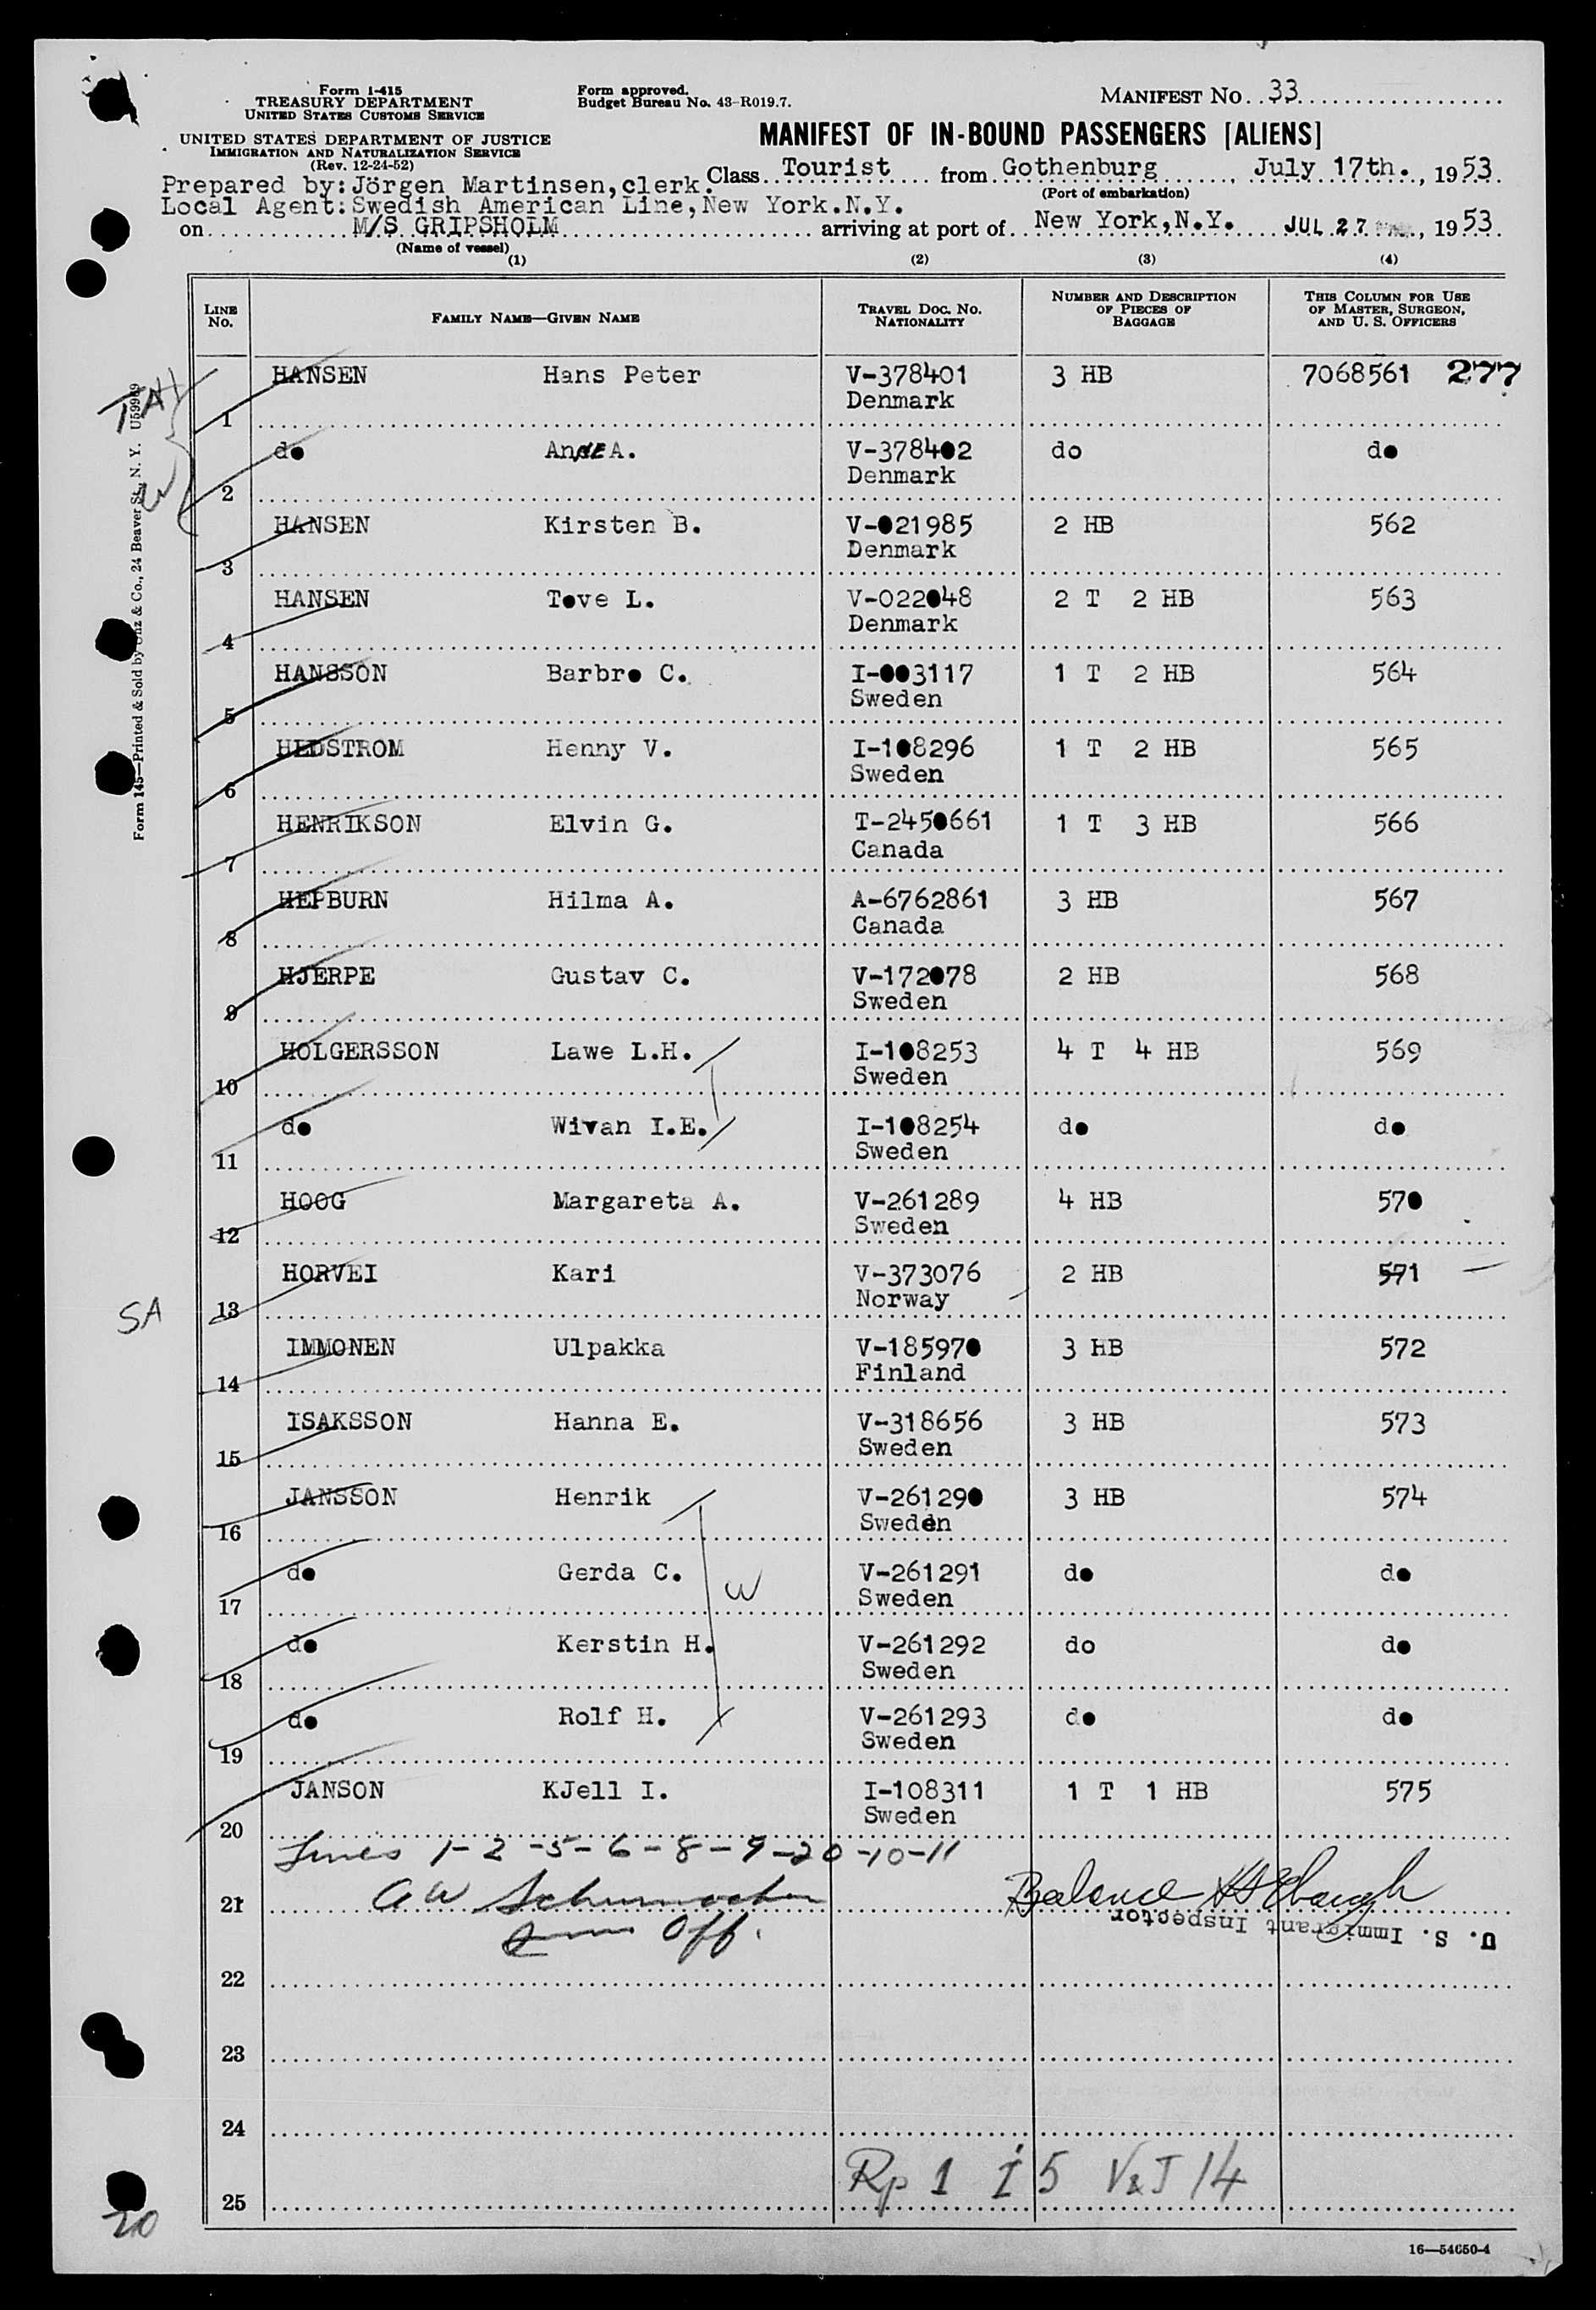 Form I-415
TREASURY DEPARTMENT
UNITED STATES CUSTOMS SERVICE
UNITED STATES DEPARTMENT OF JUSTICE
IMMIGRATION AND NATURALIZATION SERVICE
(Rev. 12-24-52)
Form approved.
Budget Bureau No. 43-R019.7.
MANIFEST NO. 33
MANIFEST OF IN-BOUND PASSENGERS [ALIENS]
Class Tourist from Gothenburg, July 17th., 1953
(Port of embarkation)
Prepared by: Jörgen Martinsen, clerk.
Local Agent: Swedish American Line, New York. N.Y.
on M/S GRIPSHOLM arriving at port of New York, N.Y. JUL 27, 1953
(Name of vessel)
(1) (2) (3) (4)
LINE NO. FAMILY NAME—GIVEN NAME TRAVEL DOC. NO. NATIONALITY NUMBER AND DESCRIPTION OF PIECES OF BAGGAGE THIS COLUMN FOR USE OF MASTER, SURGEON, AND U. S. OFFICERS
1 HANSEN Hans Peter V-378401 3 HB 7068561 277
Denmark
2 do A. V-378402 do do
Denmark
3 HANSEN Kirsten B. V-021985 2 HB 562
Denmark
4 HANSEN Tove L. V-022048 2 T 2 HB 563
Denmark
5 HANSSON Barbro C. I-003117 1 T 2 HB 564
Sweden
6 HEDSTROM Henny V. I-108296 1 T 2 HB 565
Sweden
7 HENRIKSON Elvin G. T-2450661 1 T 3 HB 566
Canada
8 HEPBURN Hilma A. A-6762861 3 HB 567
Canada
9 HJERPE Gustav C. V-172078 2 HB 568
Sweden
10 HOLGERSSON Lawe L.H. I-108253 4 T 4 HB 569
Sweden
11 do Wivan I.E. I-108254 do do
Sweden
12 HOOG Margareta A. V-261289 4 HB 570
Sweden
13 HORVEI Kari V-373076 2 HB 571
Norway
SA
14 IMMONEN Ulpakka V-185970 3 HB 572
Finland
15 ISAKSSON Hanna E. V-318656 3 HB 573
Sweden
16 JANSSON Henrik V-261290 3 HB 574
Sweden
17 do Gerda C. V-261291 do do
Sweden
W
18 do Kerstin H. V-261292 do do
Sweden
19 do Rolf H. V-261293 do do
Sweden
20 JANSON KJell I. I-108311 1 T 1 HB 575
Sweden
Lines 1-2-5-6-8-9-20-10-11
21 A W Schumacher Balance
Imm Off. U. S. Immigrant Inspector
22
23
24
Rp 1 I 5 V&T 14
25
20
16—54650-4
Form 145—Printed & Sold by Unz & Co., 24 Beaver St., N. Y.